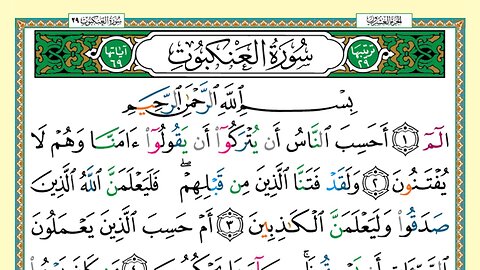 سُورَةُ العَنكَبُوتِ ٢٩
الجُزءُ العِشرُونَ
آيَاتُهَا ٦٩
سُورَةُ الْعَنْكَبُوتِ
تَرْتِيبُهَا ٢٩
بِسْمِ اللَّهِ الرَّحْمَٰنِ الرَّحِيمِ
الٓمٓ ۝١ أَحَسِبَ النَّاسُ أَن يُتْرَكُوٓا۟ أَن يَقُولُوٓا۟ ءَامَنَّا وَهُمْ لَا
يُفْتَنُونَ ۝٢ وَلَقَدْ فَتَنَّا الَّذِينَ مِن قَبْلِهِمْ ۖ فَلَيَعْلَمَنَّ اللَّهُ الَّذِينَ
صَدَقُوا۟ وَلَيَعْلَمَنَّ الْكَٰذِبِينَ ۝٣ أَمْ حَسِبَ الَّذِينَ يَعْمَلُونَ